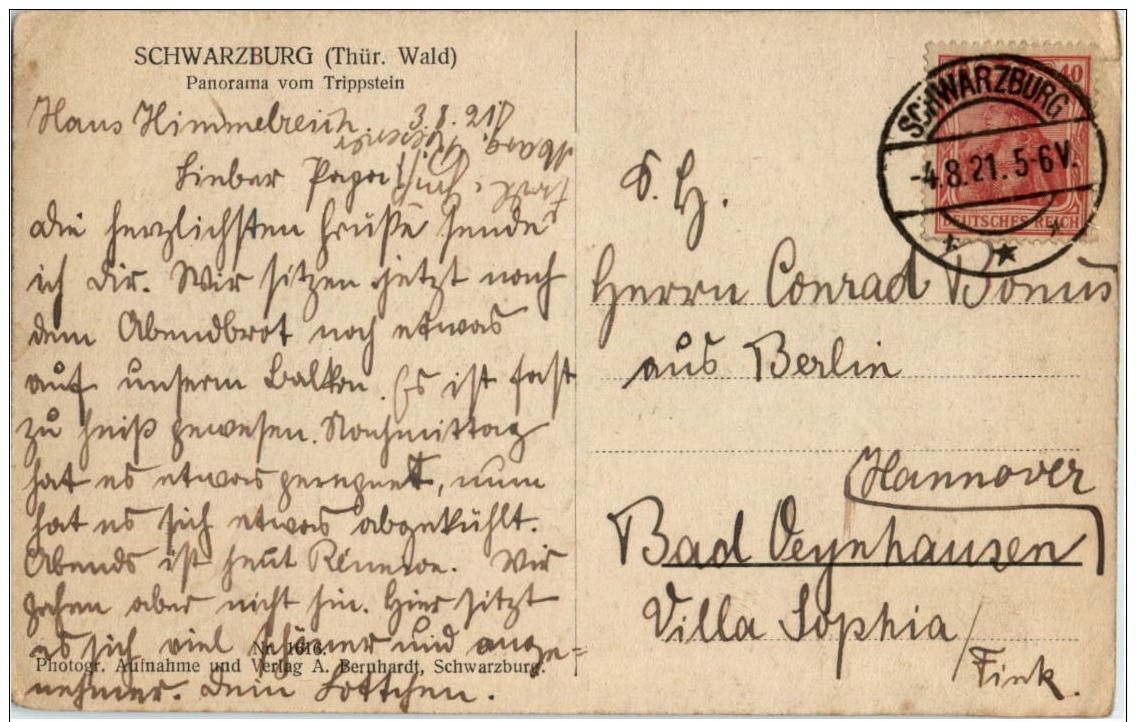 SCHWARZBURG (Thür. Wald)
Panorama vom Trippstein
Haus Himmelreich. 3.8.21
Lieber Papa!
Die herzlichsten Grüße sende
ich Dir. Wir sitzen jetzt nach
dem Abendbrot noch etwas
auf unserm Balkon. Es ist fast
zu heiß gewesen. Nachmittag
hat es etwas geregnet, nun
hat es sich etwas abgekühlt.
Abends ist heut Réunion. Wir
gehen aber nicht hin. Hier sitzt
es sich viel schöner und ange-
nehmer. Dein Lottchen.
Nr. 1616.
Photogr. Aufnahme und Verlag A. Bernhardt, Schwarzburg.
S. H.
Herrn Conrad Bonus
aus Berlin
Hannover
Bad Oeynhausen
Villa Sophia /
Fink.
SCHWARZBURG
-4.8.21. 5-6 V.
40
DEUTSCHES REICH